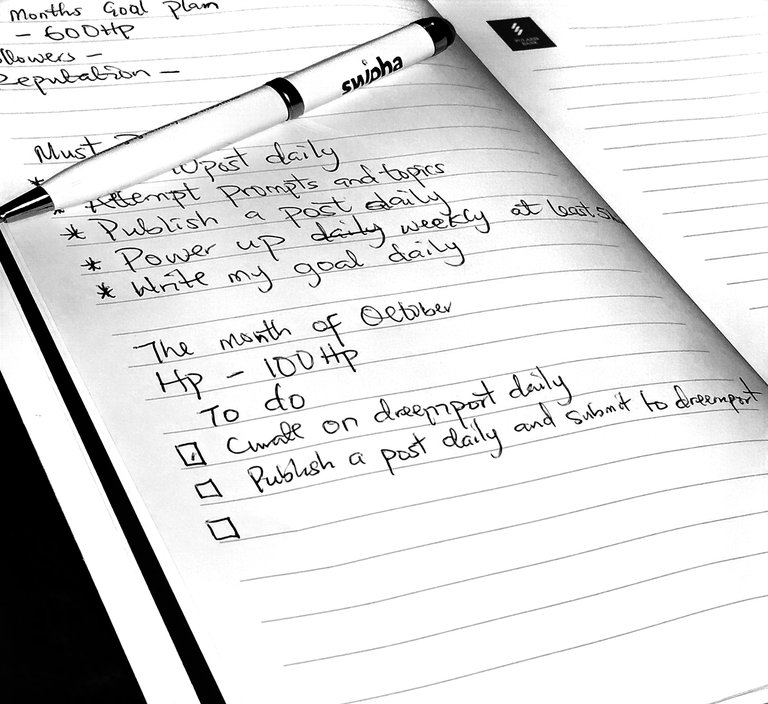 Months Goal Plan
- 600HP
Reputation -
swipha
Must
post daily
* Attempt Prompts and topics
* Publish a post daily
* Power up daily weekly at least
* Write my goal daily
The month of October
Hp - 100Hp
To do
Curate on dreemport daily
Publish a post daily and submit to dreemport